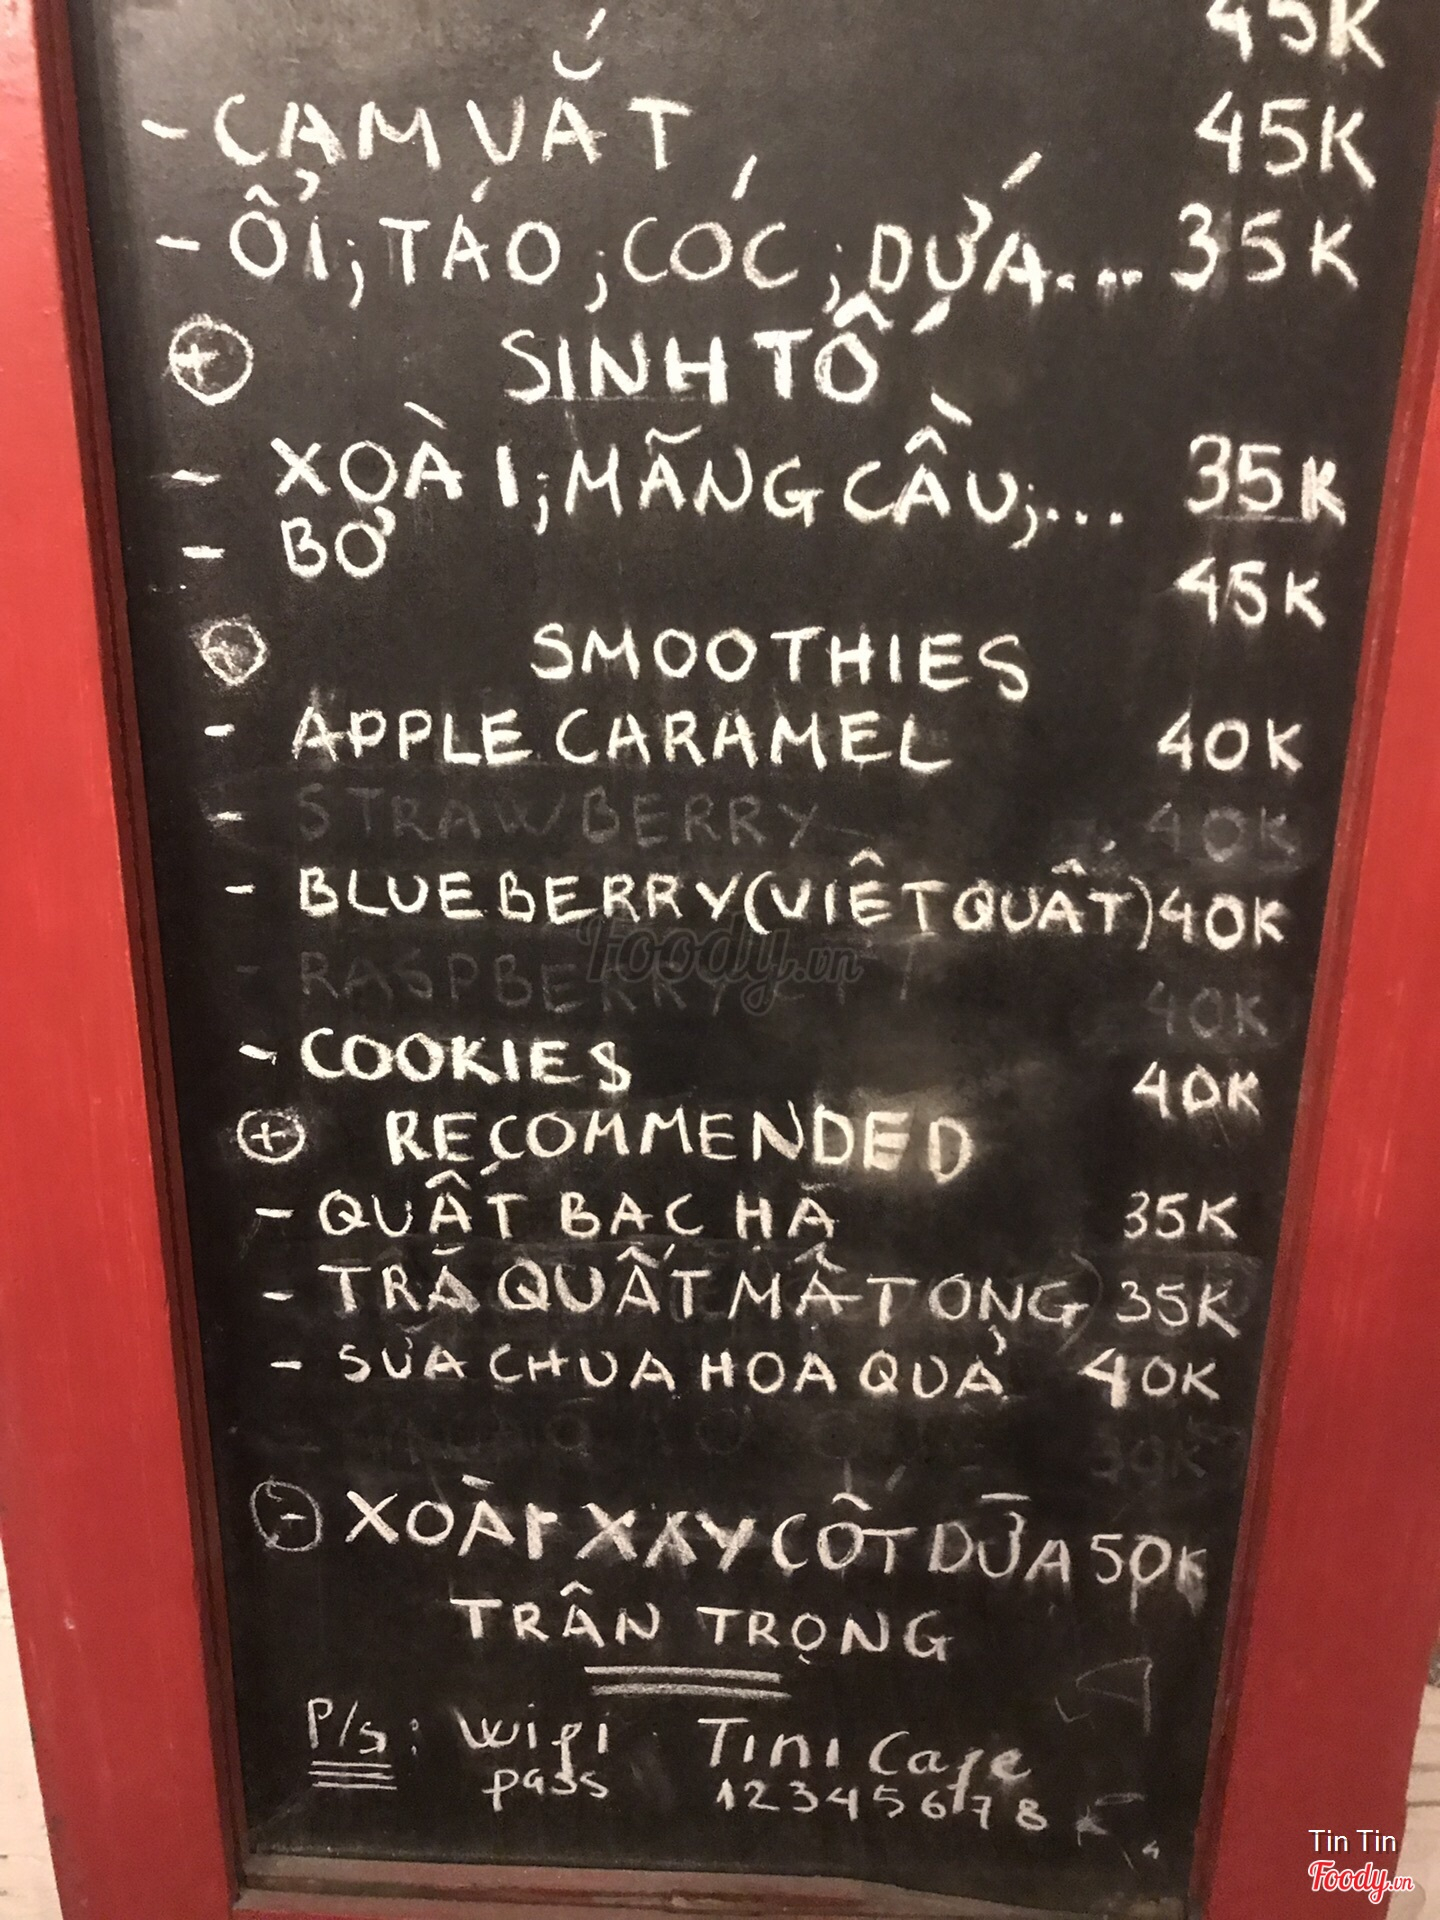 45K
- CAM VẮT 45K
- ỔI; TÁO; CÓC; DỨA... 35K
+ SINH TỐ
- XOÀI; MÃNG CẦU;... 35K
- BƠ 45K
SMOOTHIES
- APPLE CARAMEL 40K
- STRAWBERRY 40K
- BLUEBERRY (VIÊT QUẤT) 40K
- RASPBERRY 40K
- COOKIES 40K
+ RECOMMENDED
- QUẤT BẠC HÀ 35K
- TRÀ QUẤT MẬT ONG 35K
- SỮA CHUA HOA QUẢ 40K
30K
- XOÀI XAY CỐT DỪA 50K
TRÂN TRỌNG
P/s: Wifi Tini Cafe
pass 12345678
Foody.vn
Tin Tin
Foody.vn